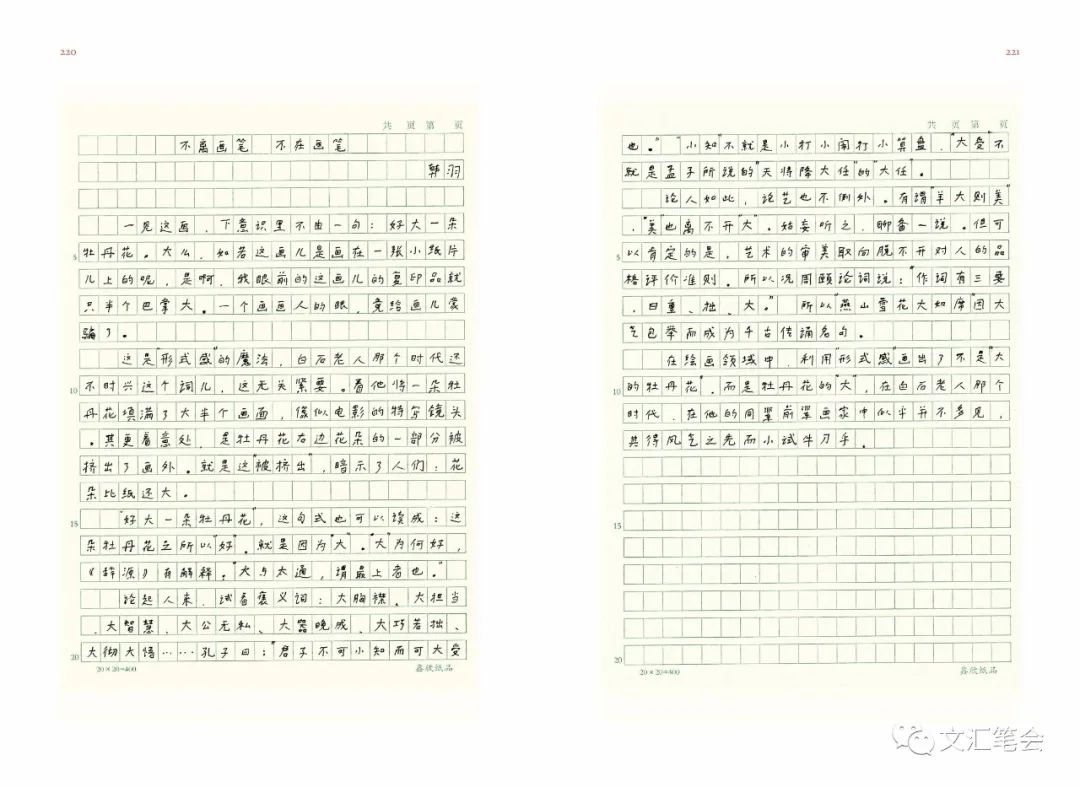 220
共 页 第 页
不离画笔 不在画笔
韩羽
一见这画，下意识里不由一句：好大一朵
5 牡丹花。大么，如若这画儿是画在一张小纸片
儿上的呢，是啊，我眼前的这画儿的复印品就
只半个巴掌大。一个画画人的眼，竟给画儿蒙
骗了。
这是“形式感”的魔法，白石老人那个时代还
10 不时兴这个词儿，这无关紧要。看他将一朵牡
丹花填满了大半个画面，像似电影的特写镜头
。其更着意处，是牡丹花右边花朵的一部分被
挤出了画外。就是这“被挤出”，暗示了人们：花
朵比纸还大。
15 “好大一朵牡丹花”，这句式也可以读成：这
朵牡丹花之所以“好”，就是因为“大”。“大”为何好，
《辞源》有解释。“大与太通，谓最上者也。”
论起人来，试看褒义词：大胸襟、大担当
、大智慧、大公无私、大器晚成、大巧若拙、
20 大彻大悟……孔子曰：“君子不可小知而可大受
20×20=400 鑫欣纸品
221
共 页 第 页
也。”“小知”不就是小打小闹打小算盘，“大受”不
就是孟子所说的“天将降大任”的“大任”。
论人如此，论艺也不例外。有谓“羊大则美”
，“美”也离不开“大”。姑妄听之，聊备一说。但可
5 以肯定的是，艺术的审美取向脱不开对人的品
格评价准则。所以况周颐论词说：“作词有三要
，曰重、拙、大。”所以“燕山雪花大如席”因大
气包举而成为千古传诵名句。
在绘画领域中，利用“形式感”画出了不是“大
10 的牡丹花”，而是牡丹花的“大”，在白石老人那个
时代，在他的同辈前辈画家中似乎并不多见，
其得风气之先而小试牛刀乎。
15
20
20×20=400 鑫欣纸品
文汇笔会